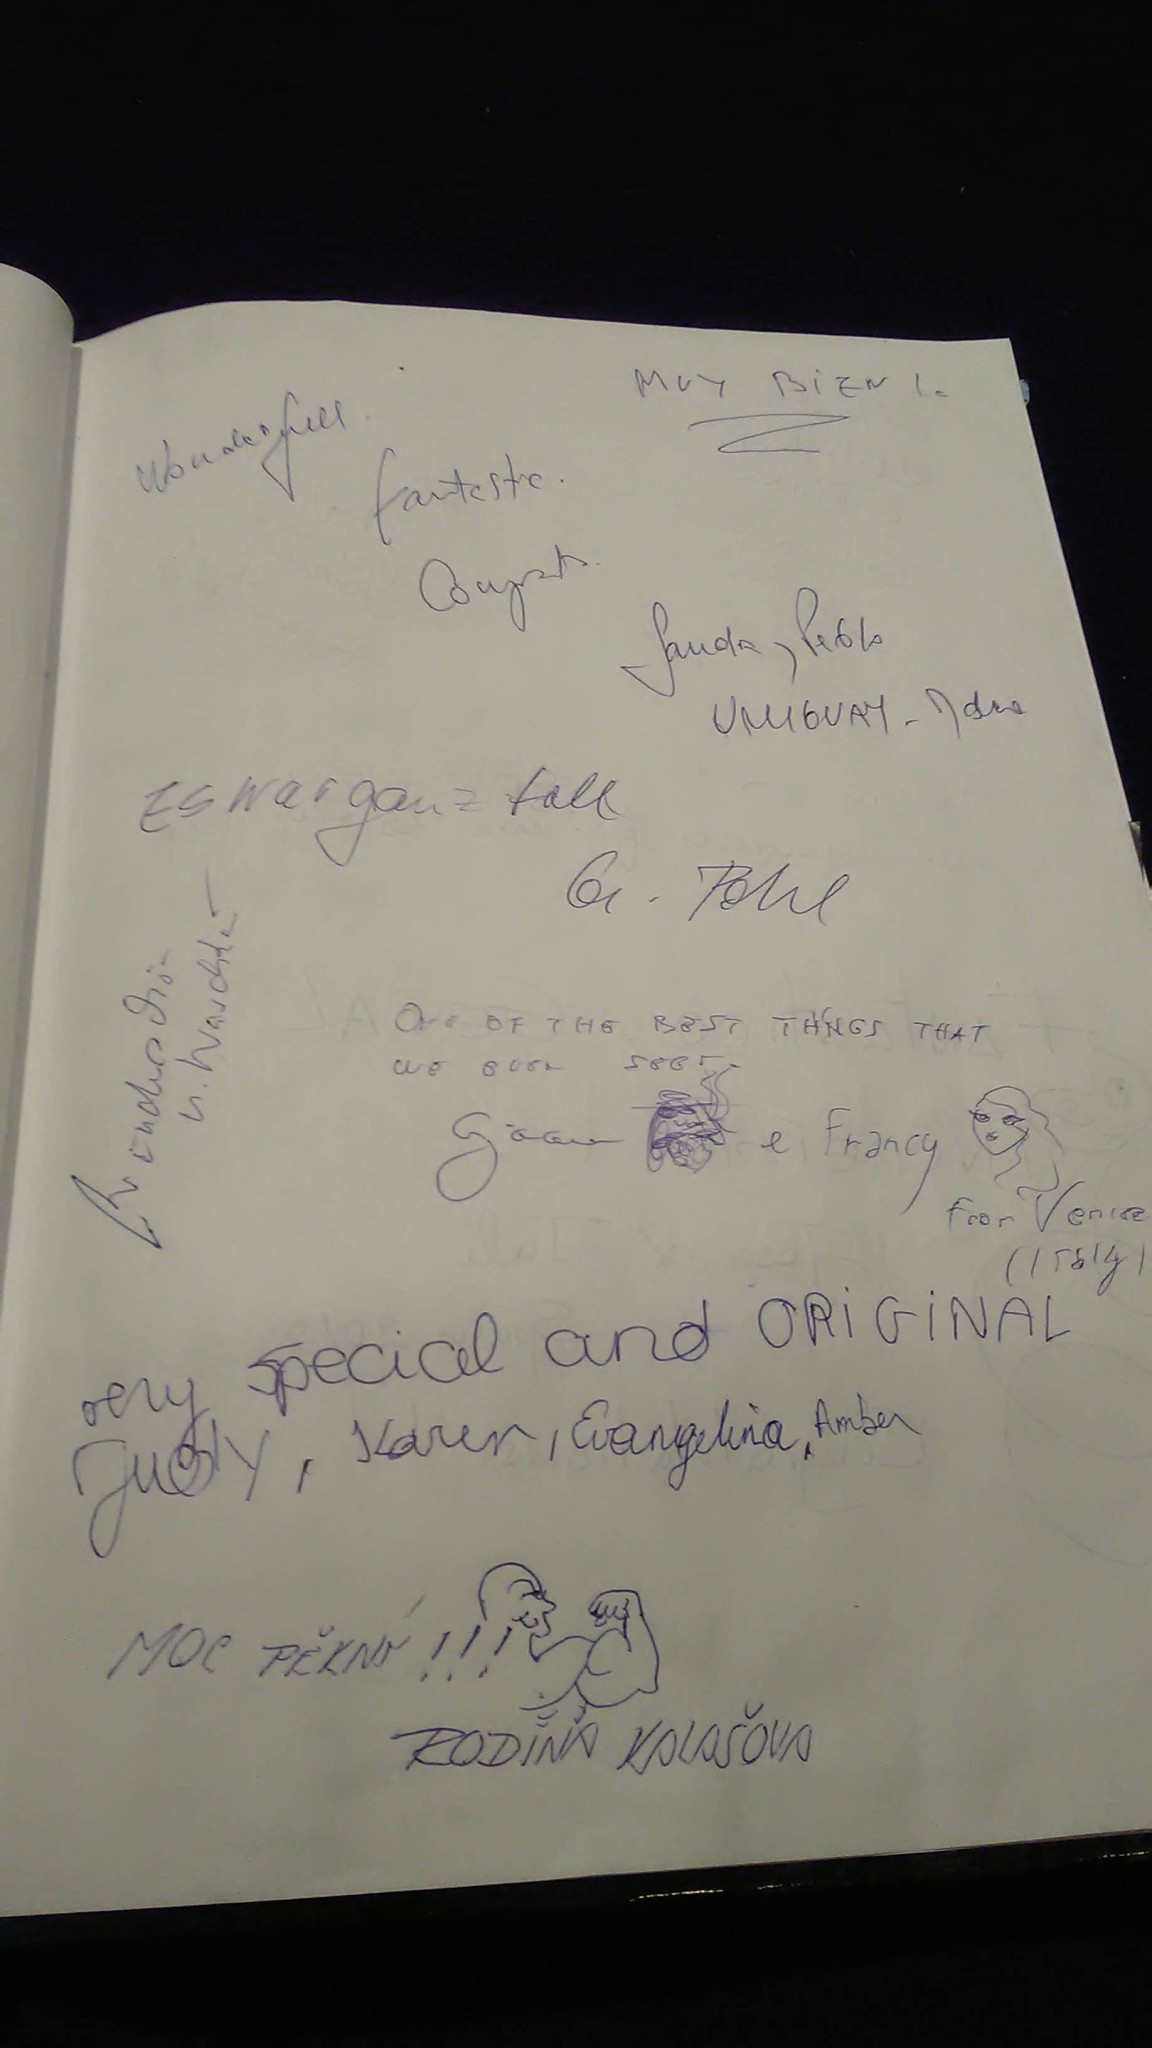 MUY BIEN!
Wonderfull.
fantastic.
Congrats.
Sandra y Pablo
URUGUAY -
Es war ganz toll
G. Pohl
ONE OF THE BEST THINGS THAT
WE EVER SEEN.
e Francy
From Venice
(Italy)
very special and ORIGINAL
Judy, Karen, Evangelina, Amber
MOC PĚKNÁ !!!
RODINA KALAŠOVA